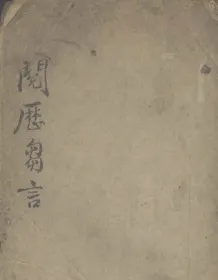 閱歷芻言